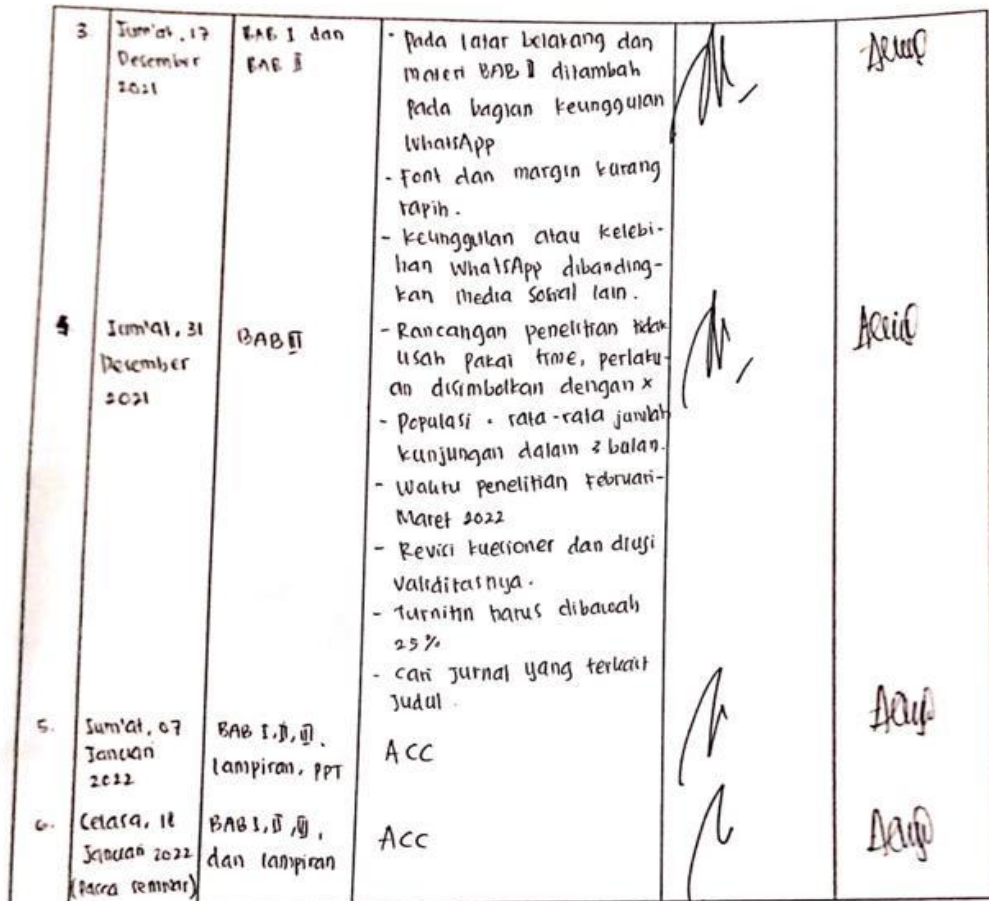 3 Jum'at, 17 Desember 2021
BAB I dan BAB II
- Pada latar belakang dan
materi BAB II ditambah
pada bagian keunggulan
WhatsApp
- Font dan margin kurang
rapih.
- keunggulan atau kelebi-
han WhatsApp dibanding-
kan media sosial lain.
4 Jum'at, 31 Desember 2021
BAB III
- Rancangan penelitian tidak
usah pakai time, perlaku-
an disimbolkan dengan x
- Populasi = rata-rata jumlah
kunjungan dalam 3 bulan.
- Waktu penelitian Februari-
Maret 2022
- Revisi kuesioner dan diuji
validitasnya.
- Turnitin harus dibawah
25%
- cari jurnal yang terkait
judul.
5. Jum'at, 07 Januari 2022
BAB I, II, III, lampiran, PPT
ACC
6. Selasa, 18 Januari 2022 (Pasca seminar)
BAB I, II, III, dan lampiran
ACC